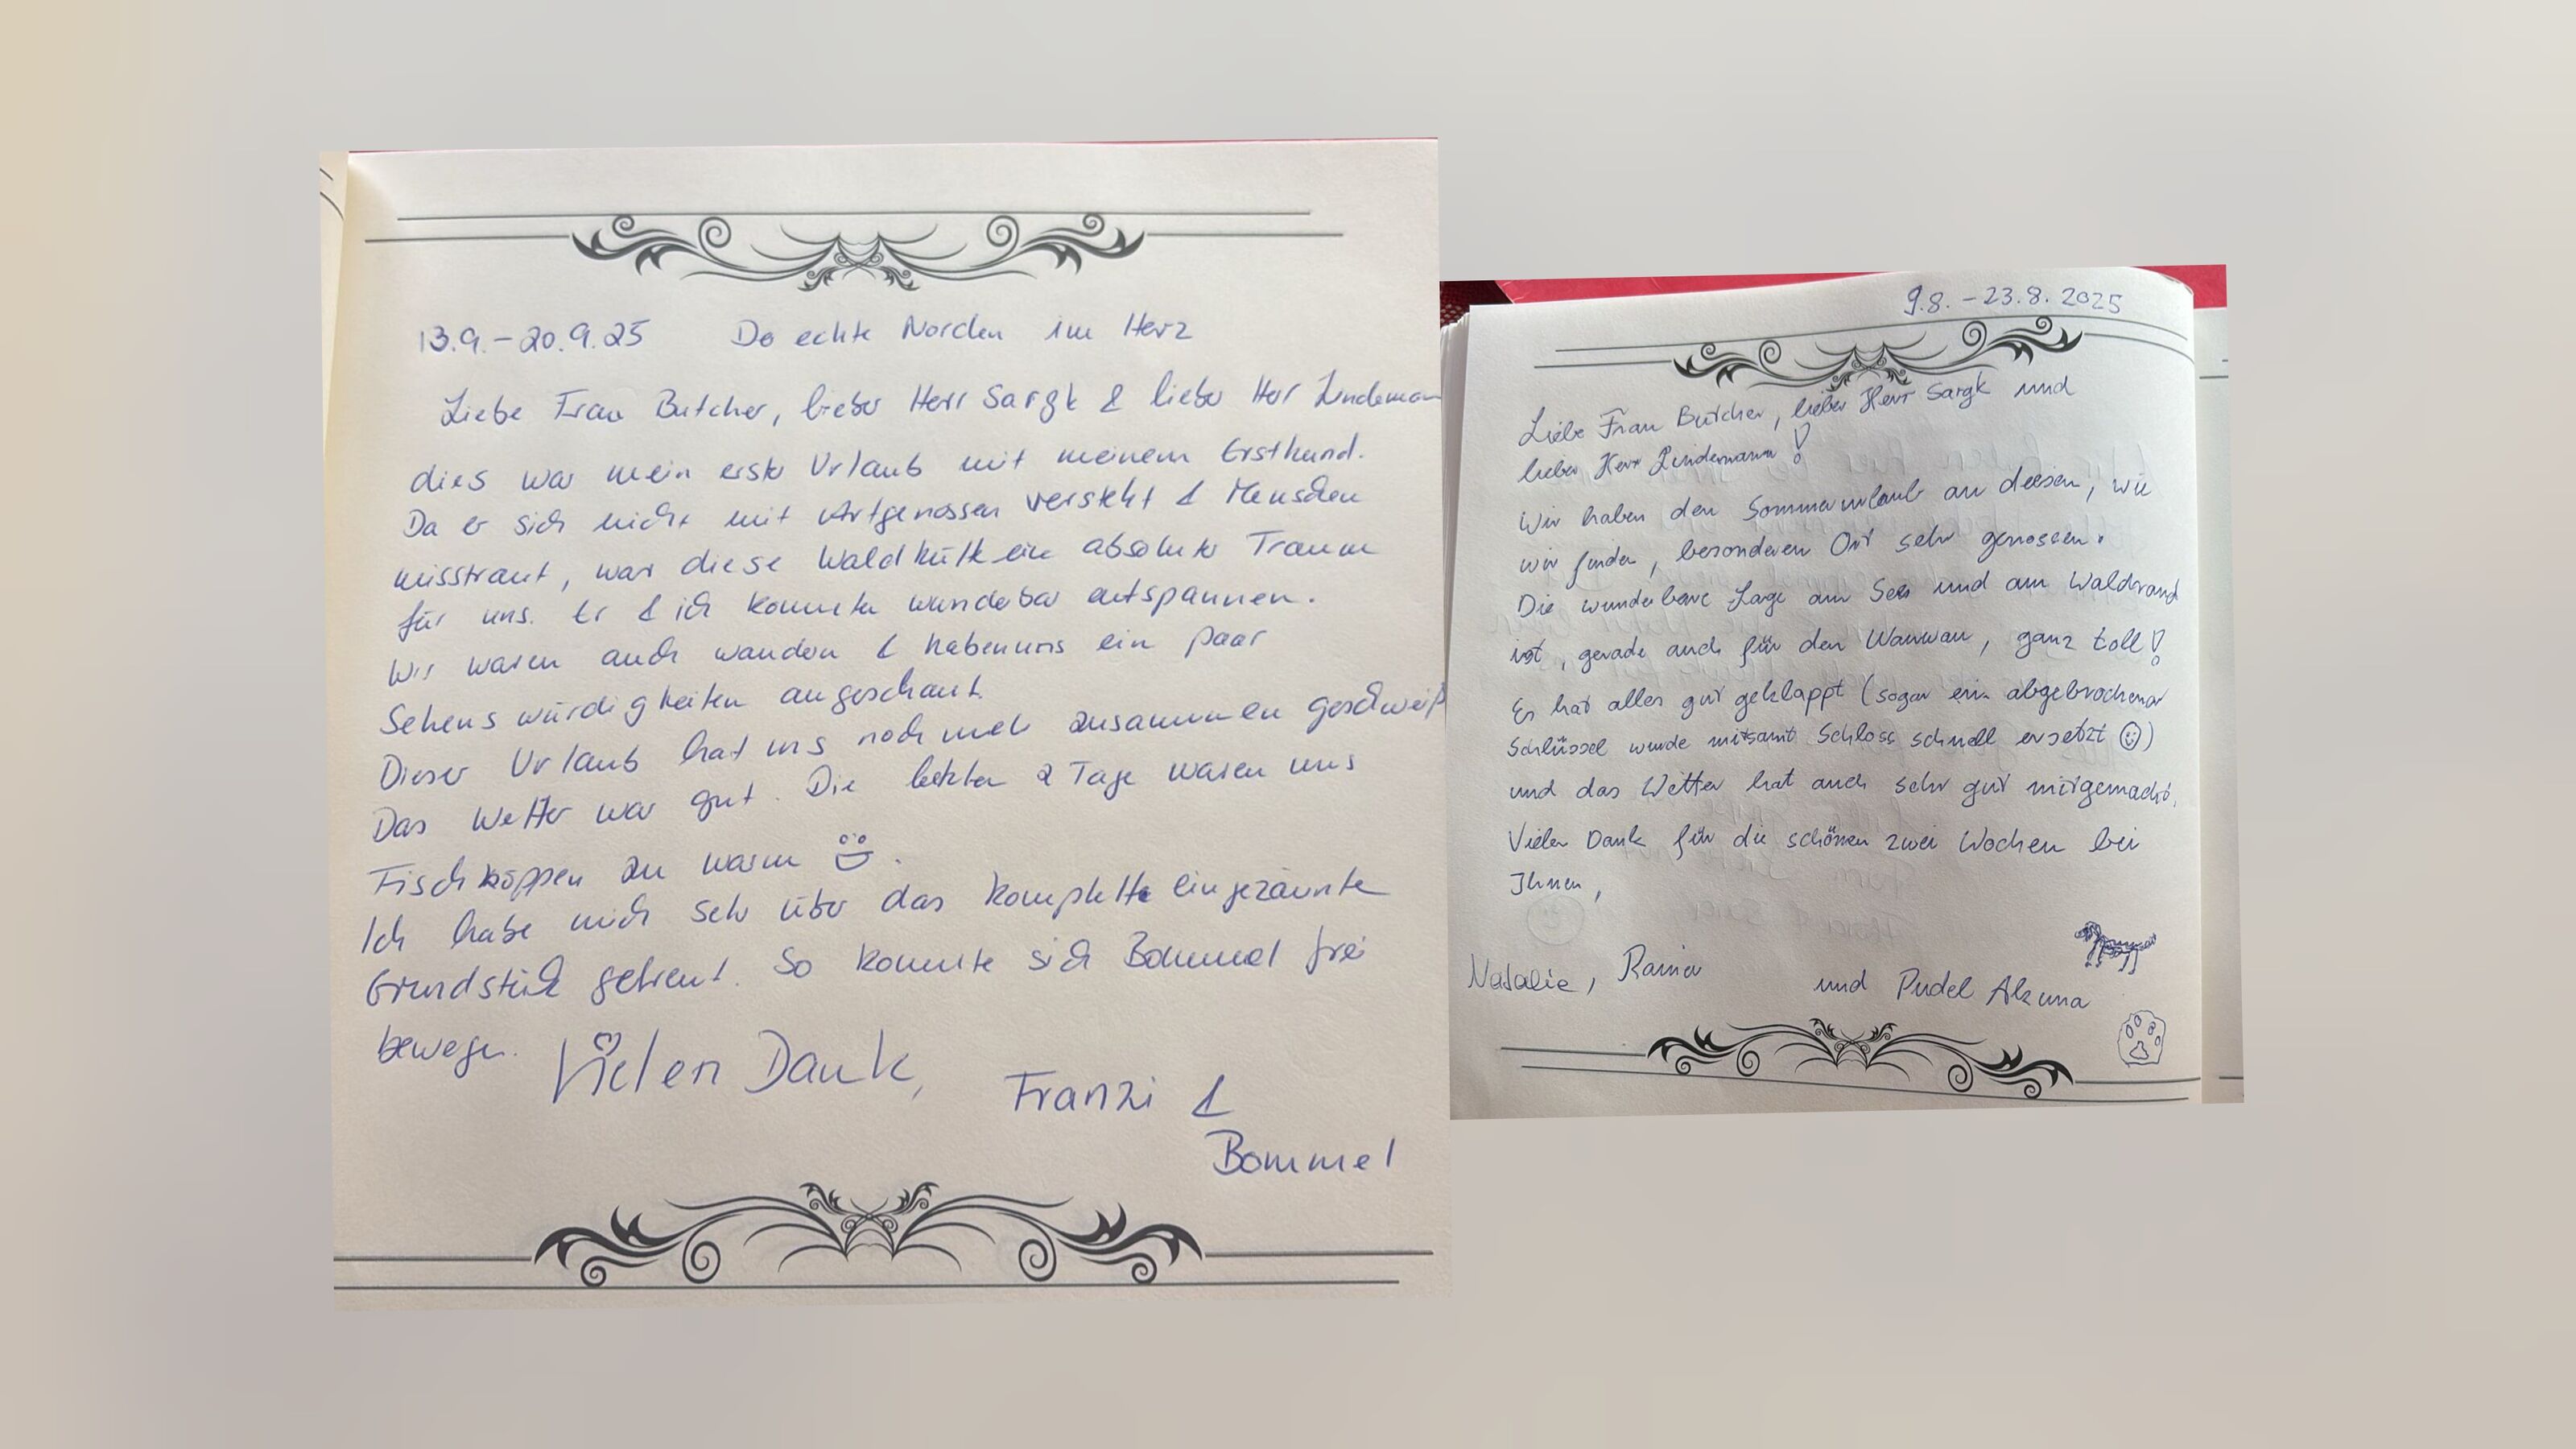 13.9.-20.9.25 Do echte Norden im Herz
Liebe Frau Butcher, lieber Herr Sargk & lieber Herr Lindeman
dies war mein erster Urlaub mit meinem Ersthund.
Da er sich nicht mit Artgenossen versteht & Menschen
misstraut, war diese Waldhütte ein absoluter Traum
für uns. Er & ich konnten wunderbar entspannen.
Wir waren auch wandern & haben uns ein paar
Sehenswürdigkeiten angeschaut.
Dieser Urlaub hat uns noch mehr zusammen geschweiß
Das Wetter war gut. Die letzten 2 Tage waren uns
Fischköppen zu warm.
Ich habe mich sehr über das komplette eingezäunte
Grundstück gefreut. So konnte sich Bommel frei
bewegen.
Vielen Dank,
Franzi &
Bommel
9.8. - 23.8. 2025
Liebe Frau Butcher, lieber Herr Sargk und
lieber Herr Lindemann!
Wir haben den Sommerurlaub an diesem, wie
wir finden, besonderen Ort sehr genossen.
Die wunderbare Lage am See und am Waldrand
ist, gerade auch für den Wauwau, ganz toll!
Es hat alles gut geklappt (sogar ein abgebrochener
Schlüssel wurde mitsamt Schloss schnell ersetzt ☺)
und das Wetter hat auch sehr gut mitgemacht.
Vielen Dank für die schönen zwei Wochen bei
Ihnen,
Natalie, Rainer und Pudel Akuna